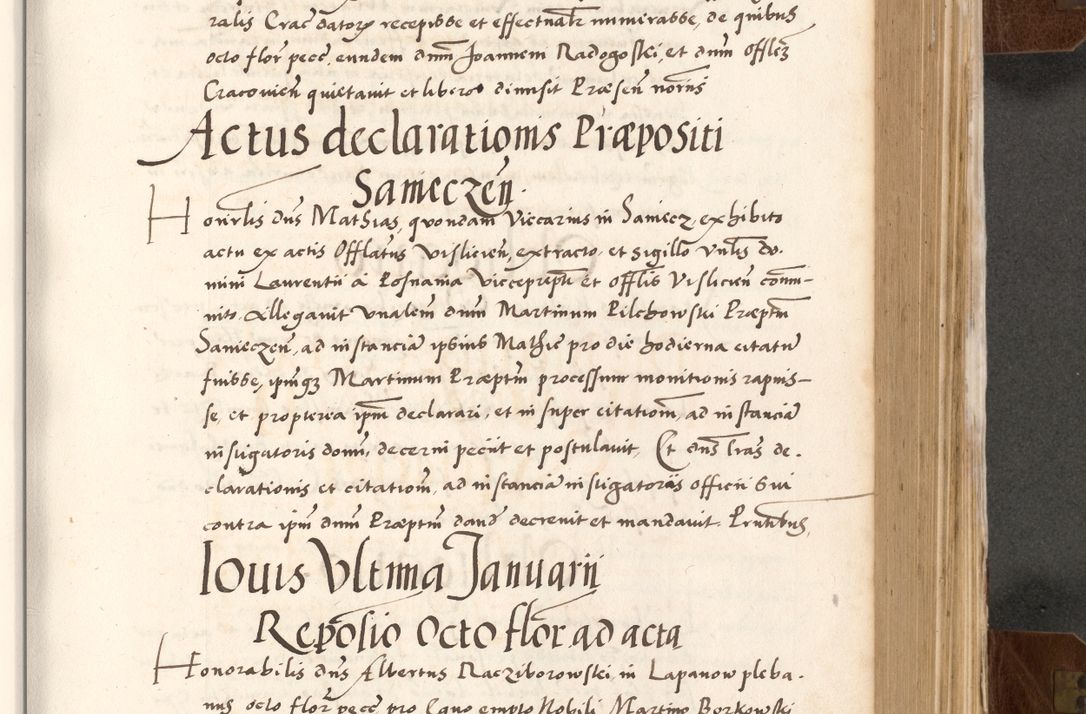 ralis Crac datorꝫ recepisse et effectualr numerasse, de quibus
octo flor pecc, eundem dnm Joannem Radogoski, et dnm Offlez
Cracovien quietavit et libero dimisit Præsen norns
Actus declarationis Præpositi
Sanieczen.
Honrlis dns Mathias, quondam Viccarius in Saniecz, exhibito
actu ex actis Offlatus Vislicien, extracto, et sigillo Vnlis do-
mini Laurentii à Posnania Viccepræpti et Offlis Vislicien com̃u-
nito. Allegavit Vnalem dnm Martinum Pilchowski Præptm
Sanieczen, ad instanciã ipsius Mathie pro die hodierna citatũ
fuisse, ipmqꝫ Martinum Præptm processum monitionis rapuis-
se, et propterea ipm declarari, et in super citationẽ, ad instanciã
instigatoris domi, decerni peciit et postulavit, Et dns lras de-
clarationis et citationẽ, ad instanciã instigatoris officii sui
contra ipm dnm Præptm dand decrevit et mandavit. Prntibus,
Iouis Vltima Januarii
Repõsio Octo flor ad acta
Honorabilis dns Albertus Racziborowski, in Lapanow pleba-
nus octo flor pecc pro Equo empto Nobili Martino Borkowski